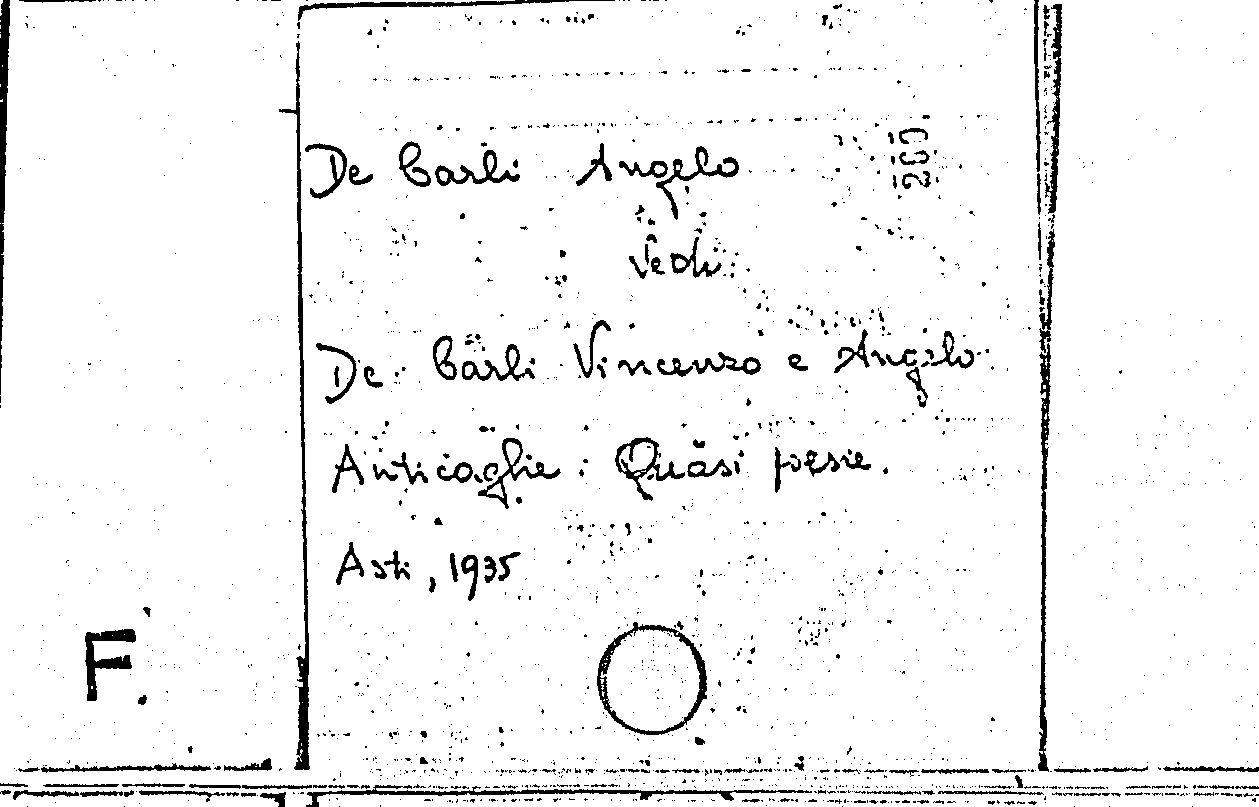 De Carli Angelo
200
Vedi
De Carli Vincenzo e Angelo
Anticaglie: Quasi poesie.
Asti, 1935
F.